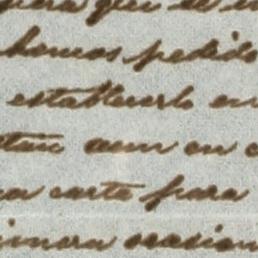 para que se
hemos pedido
establecerlo en
aun en
carta para
ocasion